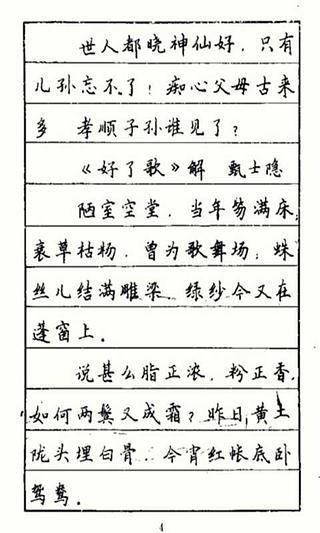 世人都晓神仙好，只有
儿孙忘不了！痴心父母古来
多 孝顺子孙谁见了？
《好了歌》解 甄士隐
陋室空堂，当年笏满床；
衰草枯杨，曾为歌舞场；蛛
丝儿结满雕梁，绿纱今又在
蓬窗上。
说甚么脂正浓，粉正香，
如何两鬓又成霜？昨日黄土
陇头埋白骨，今宵红帐底卧
鸳鸯．
4